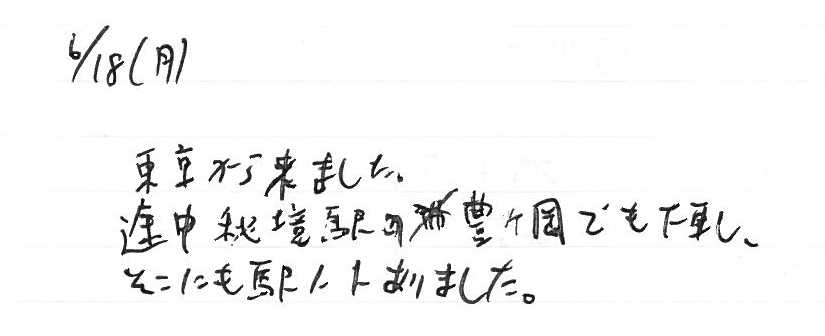 6/18(月)
東京から来ました。
途中秘境駅の豊ヶ岡でも下車し、
そこにも駅ノートありました。